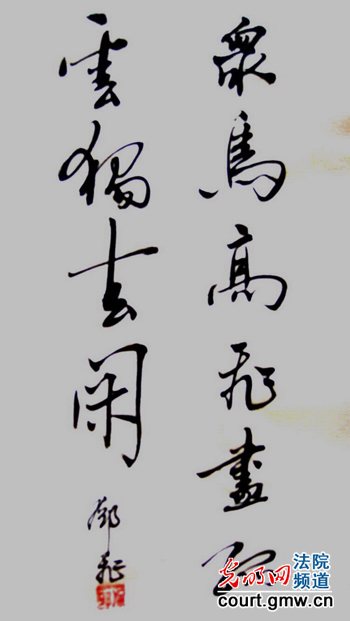 眾鳥高飛盡孤
雲獨去閑
光明网
法院
频道
court.gmw.cn